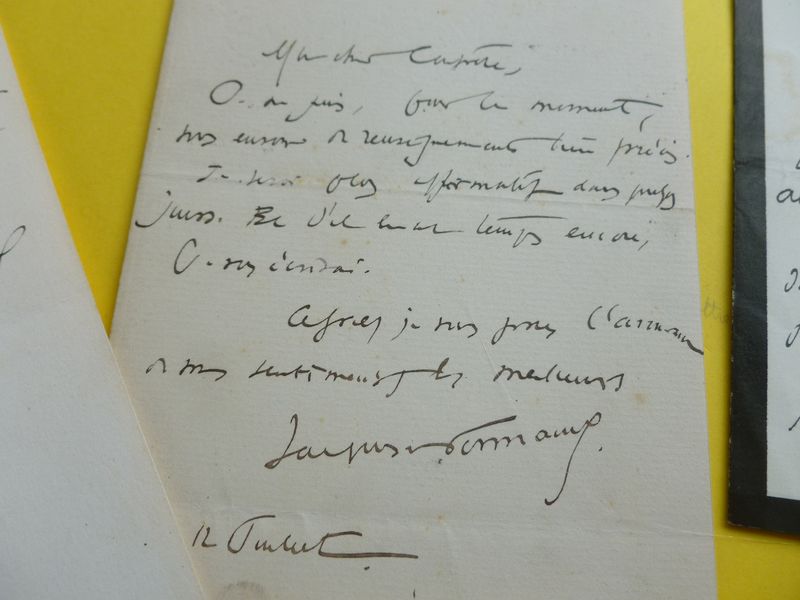 Mon cher Confrère,
Je ne puis, pour le moment,
vous envoyer de renseignements bien précis.
Je serai plus affirmatif dans quelques
jours. Et s'il en est temps encore,
Je vous écrirai.
Agréez je vous prie, l'assurance
de mes sentiments les meilleurs
Jacques Normand.
12 Juillet